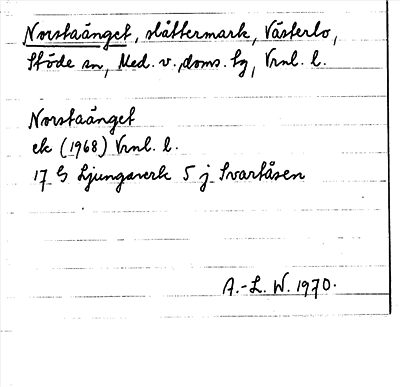 Norstaänget, slåttermark, Västerlo,
Stöde sn, Med. v. doms. tg, Vrnl. l.
Norstaänget
ek (1968) Vrnl. l.
17 G Ljungaverk 5 j Svartåsen
A.-L. W. 1970.